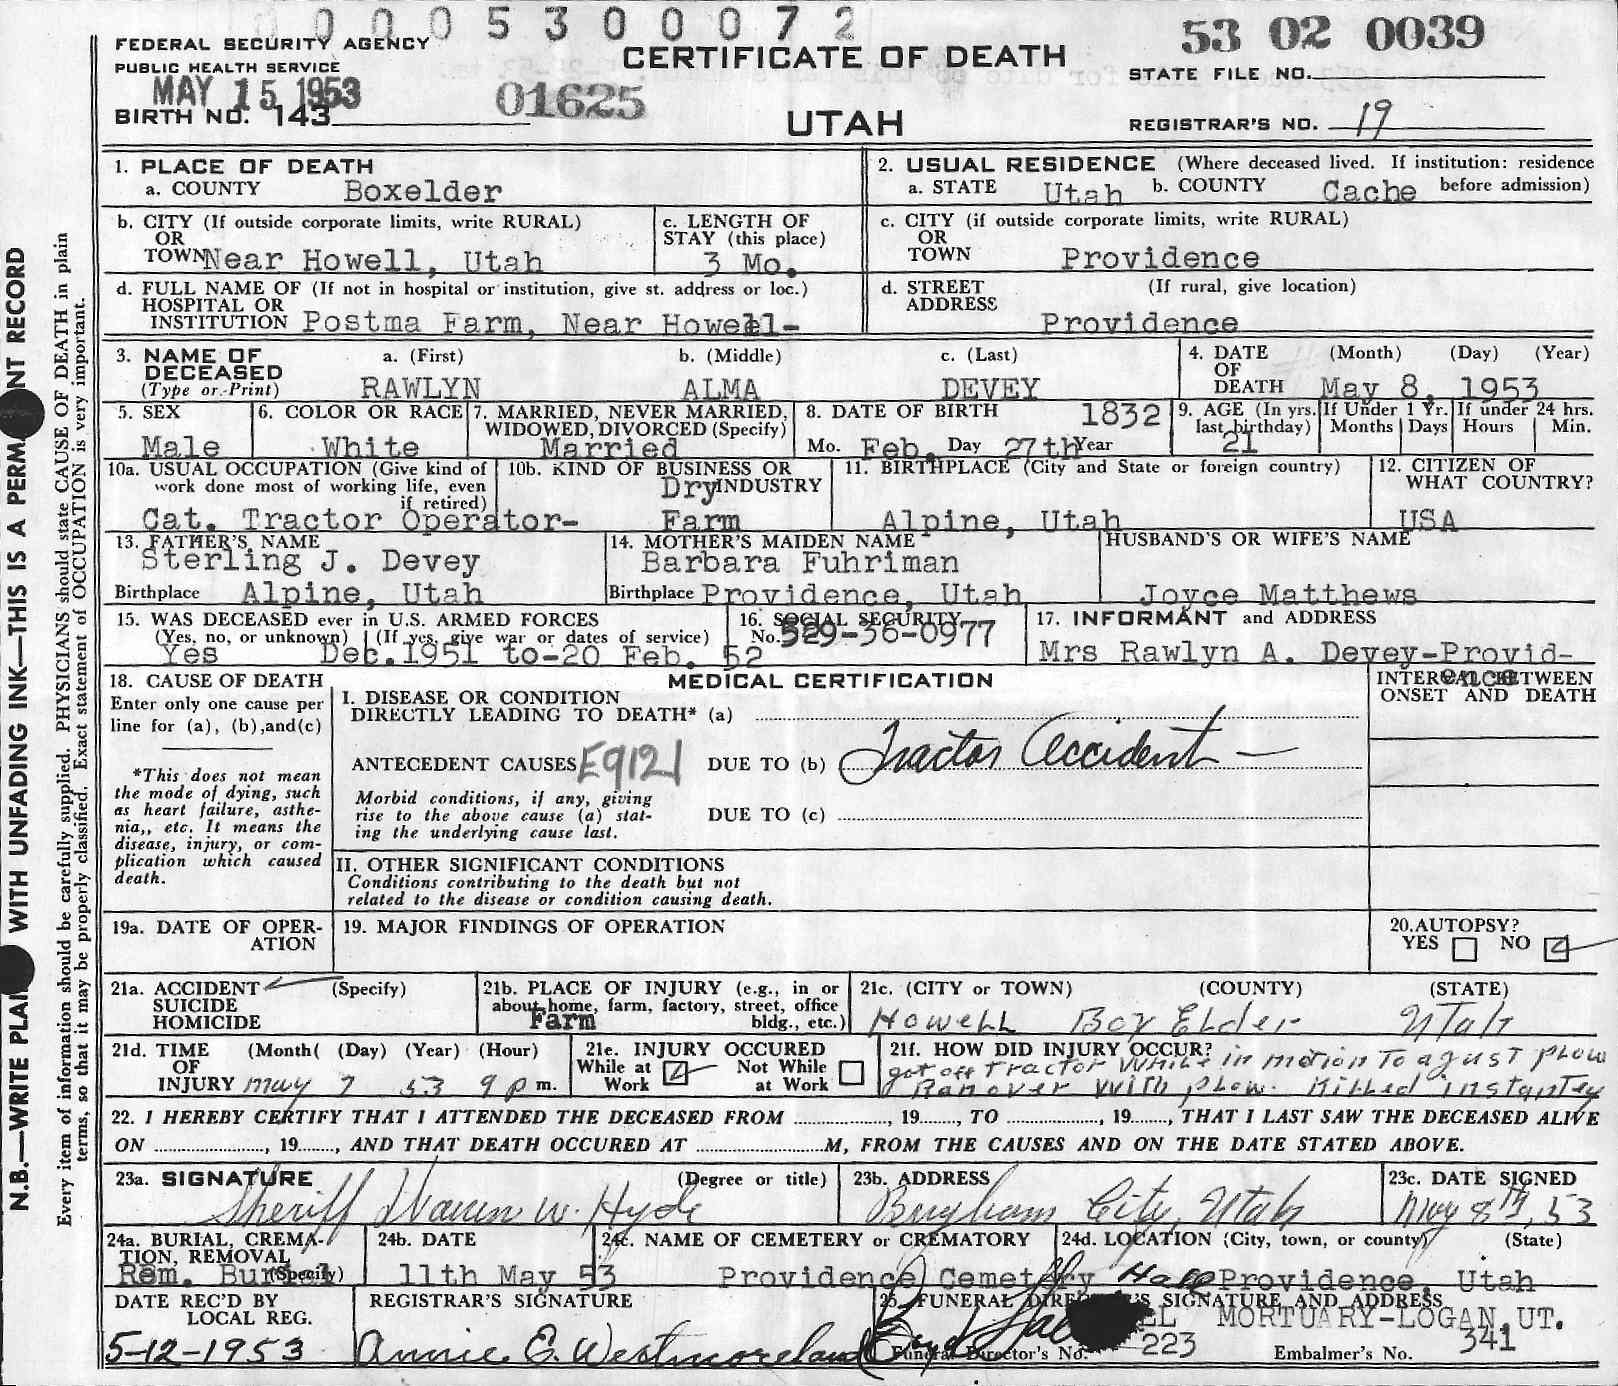 0 0 0 0 5 3 0 0 0 7 2
53 02 0039
FEDERAL SECURITY AGENCY
PUBLIC HEALTH SERVICE
CERTIFICATE OF DEATH
STATE FILE NO.
MAY 15 1953
01625
BIRTH NO. 143
UTAH
REGISTRAR'S NO. 19
1. PLACE OF DEATH
a. COUNTY Boxelder
2. USUAL RESIDENCE (Where deceased lived. If institution: residence before admission)
a. STATE Utah b. COUNTY Cache
b. CITY (If outside corporate limits, write RURAL)
OR
TOWN Near Howell, Utah
c. LENGTH OF
STAY (this place)
3 Mo.
c. CITY (if outside corporate limits, write RURAL)
OR
TOWN Providence
d. FULL NAME OF (If not in hospital or institution, give st. address or loc.)
HOSPITAL OR
INSTITUTION Postma Farm, Near Howell-
d. STREET (If rural, give location)
ADDRESS
Providence
3. NAME OF
DECEASED
(Type or Print)
a. (First) b. (Middle) c. (Last)
RAWLYN ALMA DEVEY
4. DATE (Month) (Day) (Year)
OF
DEATH May 8, 1953
5. SEX
Male
6. COLOR OR RACE
White
7. MARRIED, NEVER MARRIED,
WIDOWED, DIVORCED (Specify)
Married
8. DATE OF BIRTH 1832
Mo. Feb. Day 27th Year
9. AGE (In yrs.
last birthday)
21
If Under 1 Yr.
Months Days
If under 24 hrs.
Hours Min.
10a. USUAL OCCUPATION (Give kind of
work done most of working life, even
if retired)
Cat. Tractor Operator-
10b. KIND OF BUSINESS OR
INDUSTRY
Dry
Farm
11. BIRTHPLACE (City and State or foreign country)
Alpine, Utah
12. CITIZEN OF
WHAT COUNTRY?
USA
13. FATHER'S NAME
Sterling J. Devey
Birthplace Alpine, Utah
14. MOTHER'S MAIDEN NAME
Barbara Fuhriman
Birthplace Providence, Utah
HUSBAND'S OR WIFE'S NAME
Joyce Matthews
15. WAS DECEASED ever in U.S. ARMED FORCES
(Yes, no, or unknown) (If yes, give war or dates of service)
Yes Dec. 1951 to-20 Feb. 52
16. SOCIAL SECURITY
No. 529-36-0977
17. INFORMANT and ADDRESS
Mrs Rawlyn A. Devey-Provid-
ence
18. CAUSE OF DEATH
Enter only one cause per
line for (a), (b),and(c)
*This does not mean
the mode of dying, such
as heart failure, asthe-
nia,, etc. It means the
disease, injury, or com-
plication which caused
death.
MEDICAL CERTIFICATION
INTERVAL BETWEEN
ONSET AND DEATH
I. DISEASE OR CONDITION
DIRECTLY LEADING TO DEATH* (a)
ANTECEDENT CAUSES E9121 DUE TO (b) Tractor Accident —
Morbid conditions, if any, giving
rise to the above cause (a) stat-
ing the underlying cause last.
DUE TO (c)
II. OTHER SIGNIFICANT CONDITIONS
Conditions contributing to the death but not
related to the disease or condition causing death.
19a. DATE OF OPER-
ATION
19. MAJOR FINDINGS OF OPERATION
20. AUTOPSY?
YES NO
21a. ACCIDENT (Specify)
SUICIDE
HOMICIDE
21b. PLACE OF INJURY (e.g., in or
about home, farm, factory, street, office
bldg., etc.)
Farm
21c. (CITY or TOWN) (COUNTY) (STATE)
Howell Box Elder Utah
21d. TIME (Month( (Day) (Year) (Hour)
OF
INJURY May 7 53 9 p m.
21e. INJURY OCCURED
While at Work Not While at Work
21f. HOW DID INJURY OCCUR?
got off Tractor While in motion To agust plow
Ranover With plow. Killed instantley
22. I HEREBY CERTIFY THAT I ATTENDED THE DECEASED FROM , 19 , TO , 19 , THAT I LAST SAW THE DECEASED ALIVE
ON , 19 , AND THAT DEATH OCCURED AT M, FROM THE CAUSES AND ON THE DATE STATED ABOVE.
23a. SIGNATURE (Degree or title)
Sheriff Warren W. Hyde
23b. ADDRESS
Brigham City, Utah
23c. DATE SIGNED
May 8th, 53
24a. BURIAL, CREMA-
TION, REMOVAL
(Specify)
Rem. Burial
24b. DATE
11th May 53
24c. NAME OF CEMETERY or CREMATORY
Providence Cemetery
24d. LOCATION (City, town, or county) (State)
Providence, Utah
DATE REC'D BY
LOCAL REG.
5-12-1953
REGISTRAR'S SIGNATURE
Annie E. Westmoreland
25. FUNERAL DIRECTOR'S SIGNATURE AND ADDRESS
MORTUARY-LOGAN, UT.
Funeral Director's No. 223 Embalmer's No. 341
N.B.—WRITE PLAIN WITH UNFADING INK—THIS IS A PERMANENT RECORD
Every item of information should be carefully supplied. PHYSICIANS should state CAUSE OF DEATH in plain
terms, so that it may be properly classified. Exact statement of OCCUPATION is very important.